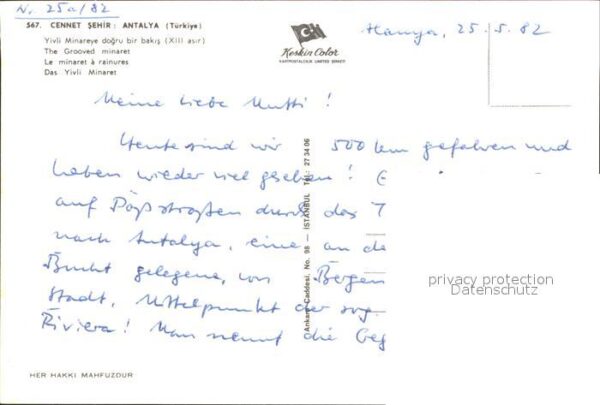 Nr. 25a/82
567. CENNET ŞEHİR: ANTALYA (Türkiye)
Yivli Minareye doğru bir bakış (XIII asır)
The Grooved minaret
Le minaret à rainures
Das Yivli Minaret
Keskin Color
KARTPOSTALCILIK LIMITED ŞİRKETİ
25.5.82
Meine liebe Mutti!
Heute sind wir 500 km gefahren und
haben wieder viel gesehen!
auf Paßstraßen durch das T
nach Antalya, eine an de
Bucht gelegene, von Bergen
Stadt, Mittelpunkt der sog.
Riviera! Man nennt die Geg
Ankara Caddesi, No. 98 - İSTANBUL Tel.: 27 34 06
privacy protection
Datenschutz
HER HAKKI MAHFUZDUR